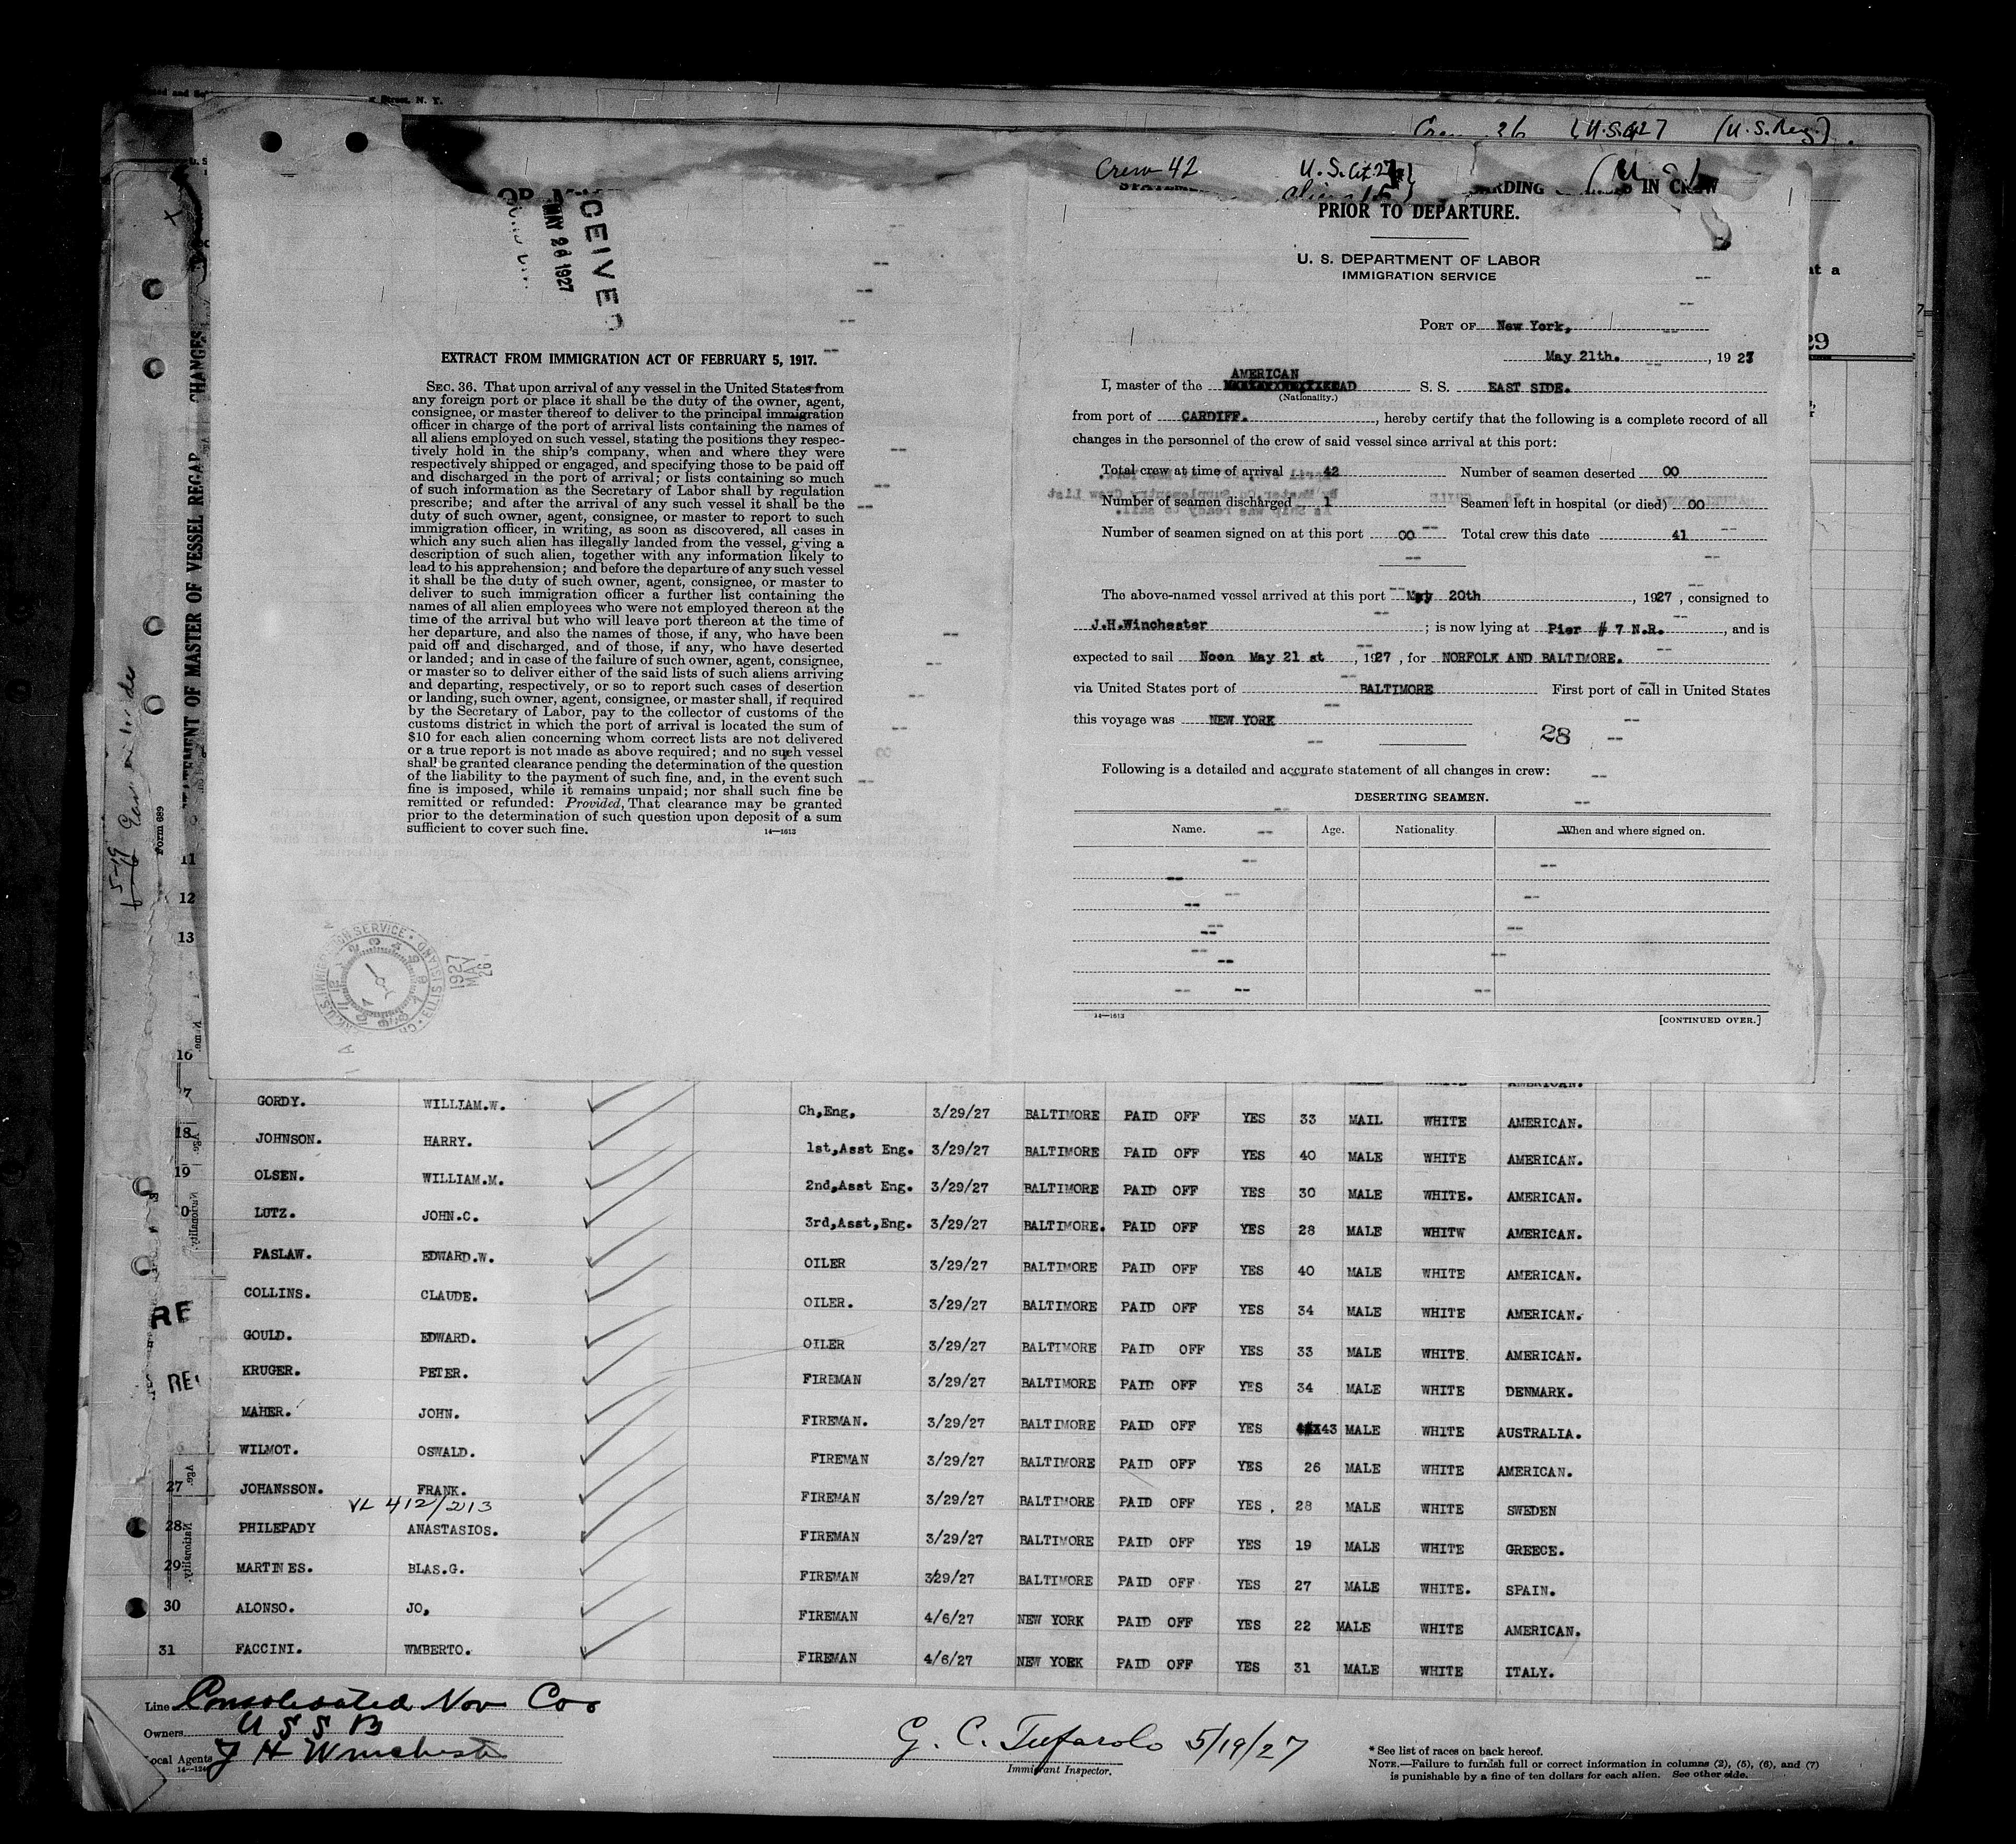 Street, N. Y.
36 (U.S. 27 (U.S. Reg.)
Crew 42 U.S. Cit 27
aliens 15
IN CREW
PRIOR TO DEPARTURE.
U. S. DEPARTMENT OF LABOR
IMMIGRATION SERVICE
PORT OF New York,
May 21th. , 1927
AMERICAN
I, master of the S. S. EAST SIDE.
(Nationality.)
from port of CARDIFF. , hereby certify that the following is a complete record of all
changes in the personnel of the crew of said vessel since arrival at this port:
Total crew at time of arrival 42 Number of seamen deserted 00
Number of seamen discharged 1 Seamen left in hospital (or died) 00
Number of seamen signed on at this port 00 Total crew this date 41
The above-named vessel arrived at this port May 20th , 1927 , consigned to
J.H.Winchester ; is now lying at Pier # 7 N.R. , and is
expected to sail Noon May 21 st , 1927 , for NORFOLK AND BALTIMORE.
via United States port of BALTIMORE First port of call in United States
this voyage was NEW YORK
28
Following is a detailed and accurate statement of all changes in crew:
DESERTING SEAMEN.
Name. Age. Nationality When and where signed on.
14—1613 [CONTINUED OVER.]
CEIVED
MAY 26 1927
EXTRACT FROM IMMIGRATION ACT OF FEBRUARY 5, 1917.
SEC. 36. That upon arrival of any vessel in the United States from
any foreign port or place it shall be the duty of the owner, agent,
consignee, or master thereof to deliver to the principal immigration
officer in charge of the port of arrival lists containing the names of
all aliens employed on such vessel, stating the positions they respec-
tively hold in the ship's company, when and where they were
respectively shipped or engaged, and specifying those to be paid off
and discharged in the port of arrival; or lists containing so much
of such information as the Secretary of Labor shall by regulation
prescribe; and after the arrival of any such vessel it shall be the
duty of such owner, agent, consignee, or master to report to such
immigration officer, in writing, as soon as discovered, all cases in
which any such alien has illegally landed from the vessel, giving a
description of such alien, together with any information likely to
lead to his apprehension; and before the departure of any such vessel
it shall be the duty of such owner, agent, consignee, or master to
deliver to such immigration officer a further list containing the
names of all alien employees who were not employed thereon at the
time of the arrival but who will leave port thereon at the time of
her departure, and also the names of those, if any, who have been
paid off and discharged, and of those, if any, who have deserted
or landed; and in case of the failure of such owner, agent, consignee,
or master so to deliver either of the said lists of such aliens arriving
and departing, respectively, or so to report such cases of desertion
or landing, such owner, agent, consignee, or master shall, if required
by the Secretary of Labor, pay to the collector of customs of the
customs district in which the port of arrival is located the sum of
$10 for each alien concerning whom correct lists are not delivered
or a true report is not made as above required; and no such vessel
shall be granted clearance pending the determination of the question
of the liability to the payment of such fine, and, in the event such
fine is imposed, while it remains unpaid; nor shall such fine be
remitted or refunded: Provided, That clearance may be granted
prior to the determination of such question upon deposit of a sum
sufficient to cover such fine. 14—1613
ELLIS ISLAND
1927 MAY 26
OF MASTER OF VESSEL REGAR CHANGES
Form 689
11
12
13
16
AMERICAN.
7 GORDY. WILLIAM.W. Ch,Eng, 3/29/27 BALTIMORE PAID OFF YES 33 MAIL WHITE AMERICAN.
18 JOHNSON. HARRY. 1st,Asst Eng. 3/29/27 BALTIMORE PAID OFF YES 40 MALE WHITE AMERICAN.
19 OLSEN. WILLIAM.M. 2nd,Asst Eng. 3/29/27 BALTIMORE PAID OFF YES 30 MALE WHITE. AMERICAN.
0 LUTZ. JOHN.C. 3rd,Asst,Eng. 3/29/27 BALTIMORE. PAID OFF YES 28 MALE WHITW AMERICAN.
PASLAW. EDWARD.W. OILER 3/29/27 BALTIMORE PAID OFF YES 40 MALE WHITE AMERICAN.
COLLINS. CLAUDE. OILER. 3/29/27 BALTIMORE PAID OFF YES 34 MALE WHITE AMERICAN.
GOULD. EDWARD. OILER 3/29/27 BALTIMORE PAID OFF YES 33 MALE WHITE AMERICAN.
KRUGER. PETER. FIREMAN 3/29/27 BALTIMORE PAID OFF YES 34 MALE WHITE DENMARK.
MAHER. JOHN. FIREMAN. 3/29/27 BALTIMORE PAID OFF YES 43 MALE WHITE AUSTRALIA.
WILMOT. OSWALD. FIREMAN 3/29/27 BALTIMORE PAID OFF YES 26 MALE WHITE AMERICAN.
27 JOHANSSON. FRANK. FIREMAN 3/29/27 BALTIMORE PAID OFF YES. 28 MALE WHITE SWEDEN
VL 412/213
28 PHILEPADY ANASTASIOS. FIREMAN 3/29/27 BALTIMORE PAID OFF YES 19 MALE WHITE GREECE.
29 MARTINES. BLAS.G. FIREMAN 3/29/27 BALTIMORE PAID OFF YES 27 MALE WHITE. SPAIN.
30 ALONSO. JO, FIREMAN 4/6/27 NEW YORK PAID OFF YES 22 MALE WHITE AMERICAN.
31 FACCINI. WMBERTO. FIREMAN 4/6/27 NEW YORK PAID OFF YES 31 MALE WHITE ITALY.
Line Consolidated Nav Co
Owners U S S B
Local Agents J H Winchester
G. C. Tufarolo 5/19/27
Immigrant Inspector.
* See list of races on back hereof.
NOTE.—Failure to furnish full or correct information in columns (2), (5), (6), and (7)
is punishable by a fine of ten dollars for each alien. See other side.